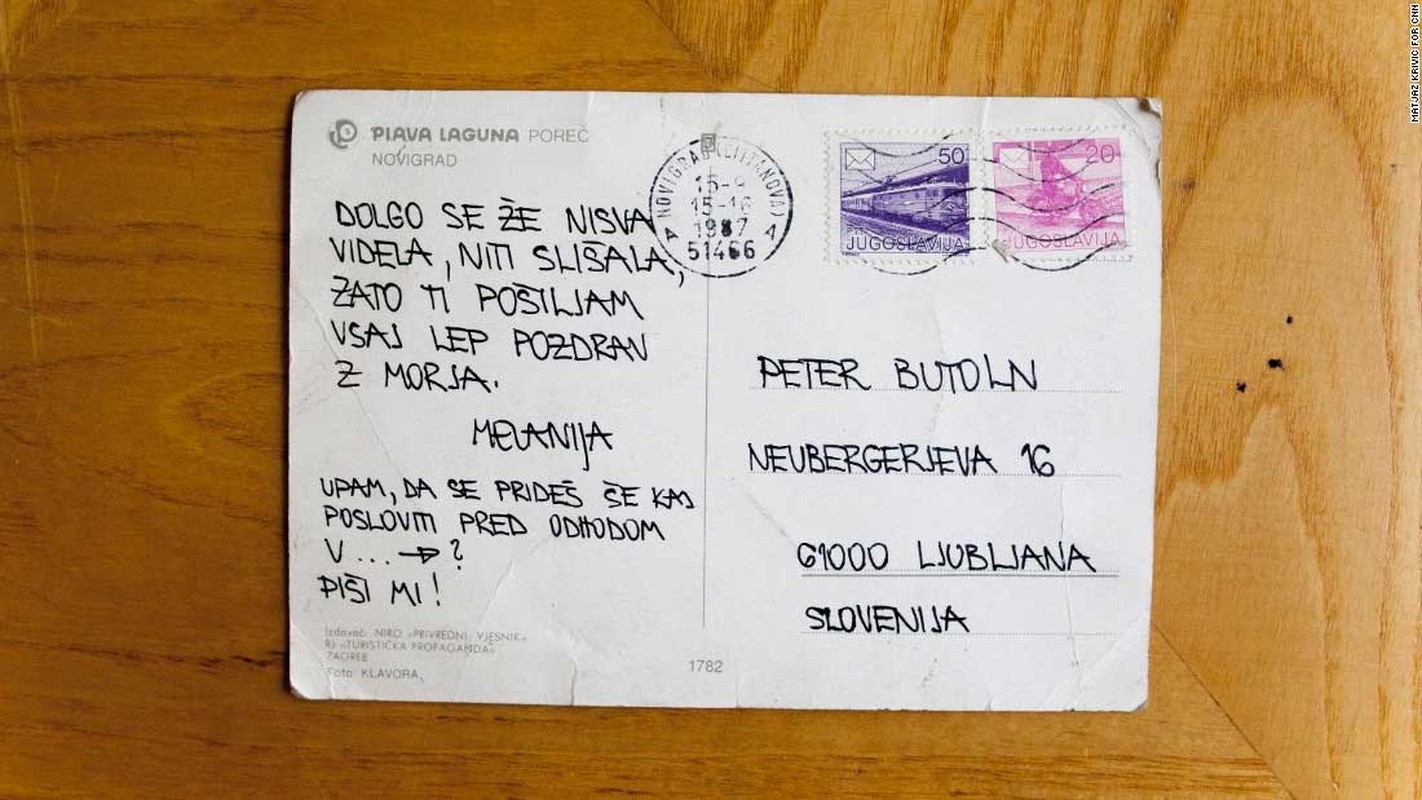 PLAVA LAGUNA POREČ
NOVIGRAD
DOLGO SE ŽE NISVA
VIDELA, NITI SLIŠALA,
ZATO TI POŠILJAM
VSAJ LEP POZDRAV
Z MORJA.
MELANIJA
UPAM, DA SE PRIDEŠ ŠE KAJ
POSLOVITI PRED ODHODOM
V ... → ?
PIŠI MI!
Izdavač: NIRO »PRIVREDNI VJESNIK«
RJ »TURISTIČKA PROPAGANDA«
ZAGREB
Foto: KLAVORA
1782
NOVIGRAD (CITTANOVA)
A A
15-9
15-16
1987
51466
50
JUGOSLAVIJA
20
JUGOSLAVIJA
PETER BUTOLN
NEUBERGERJEVA 16
61000 LJUBLJANA
SLOVENIJA
MATJAZ KRIVIC FOR CNN